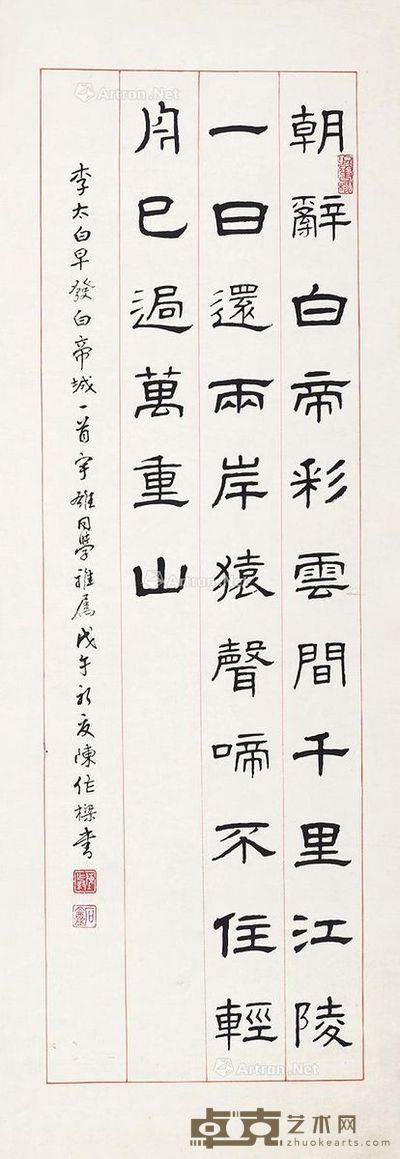 朝辭白帝彩雲間千里江陵
一日還兩岸猿聲啼不住輕
舟已過萬重山
李太白早發白帝城一首宇雄同學雅屬戊午初夏陳作樑書
Artron.Net
Artron.Net
Artron.Net
Artron.Net
卓克艺术网
zhuokearts.com